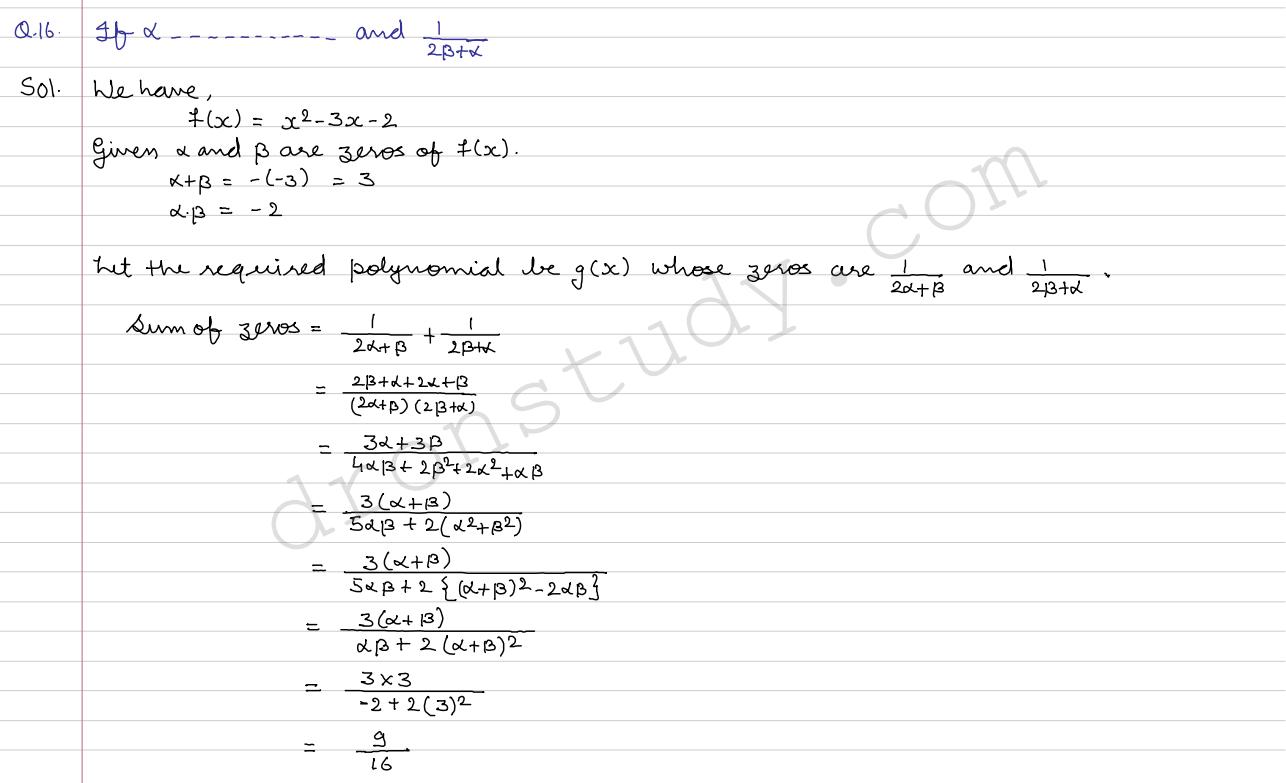 Q.16. If α ----------- and 1/(2β+α)
Sol. We have,
f(x) = x²-3x-2
Given α and β are zeros of f(x).
α+β = -(-3) = 3
α.β = -2
Let the required polynomial be g(x) whose zeros are 1/(2α+β) and 1/(2β+α).
Sum of zeros = 1/(2α+β) + 1/(2β+α)
= (2β+α+2α+β)/((2α+β)(2β+α))
= (3α+3β)/(4αβ+2β²+2α²+αβ)
= 3(α+β)/(5αβ+2(α²+β²))
= 3(α+β)/(5αβ+2{(α+β)²-2αβ})
= 3(α+β)/(αβ+2(α+β)²)
= 3×3/(-2+2(3)²)
= 9/16
dronstudy.com